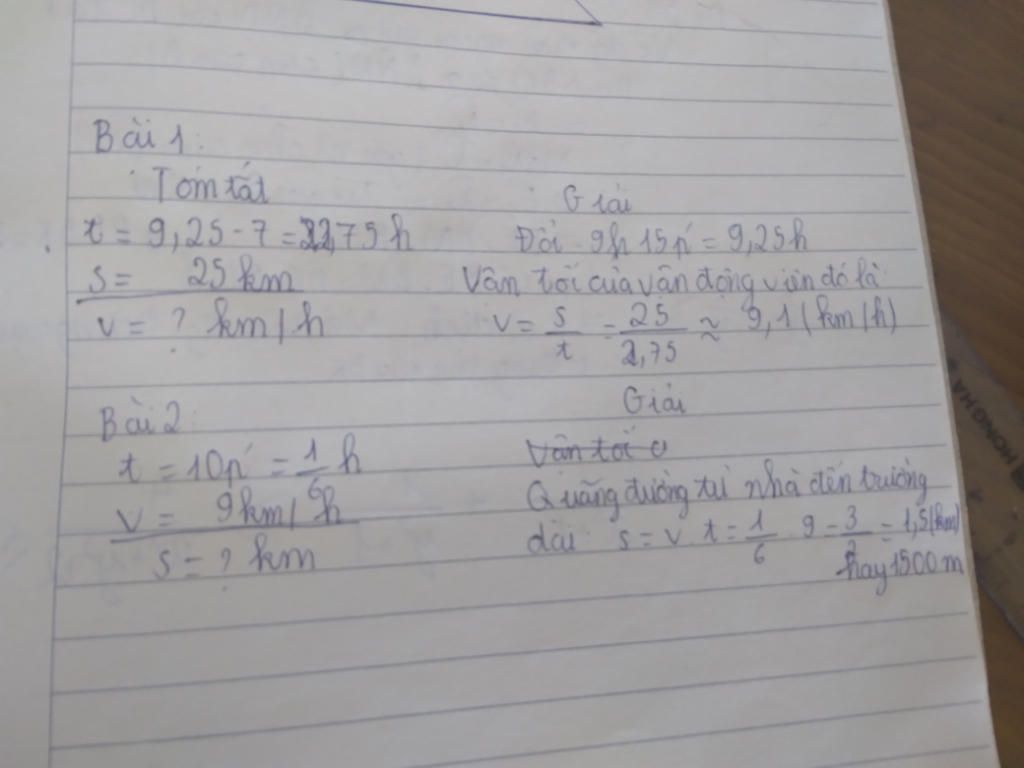 Bài 1:
Tóm tắt
Giải
t = 9,25 - 7 = 2,75 h
Đổi 9h 15p' = 9,25h
s = 25 km
Vận tốc của vận động viên đó là
v = ? km/h
v = s/t = 25/2,75 ≈ 9,1 (km/h)
Giải
Bài 2:
t = 10p' = 1/6 h
Vận tốc
v = 9 km/h
Quãng đường từ nhà đến trường
s = ? km
dài: s = v . t = 1/6 . 9 = 3/2 = 1,5 (km)
hay 1500 m
HONGHA